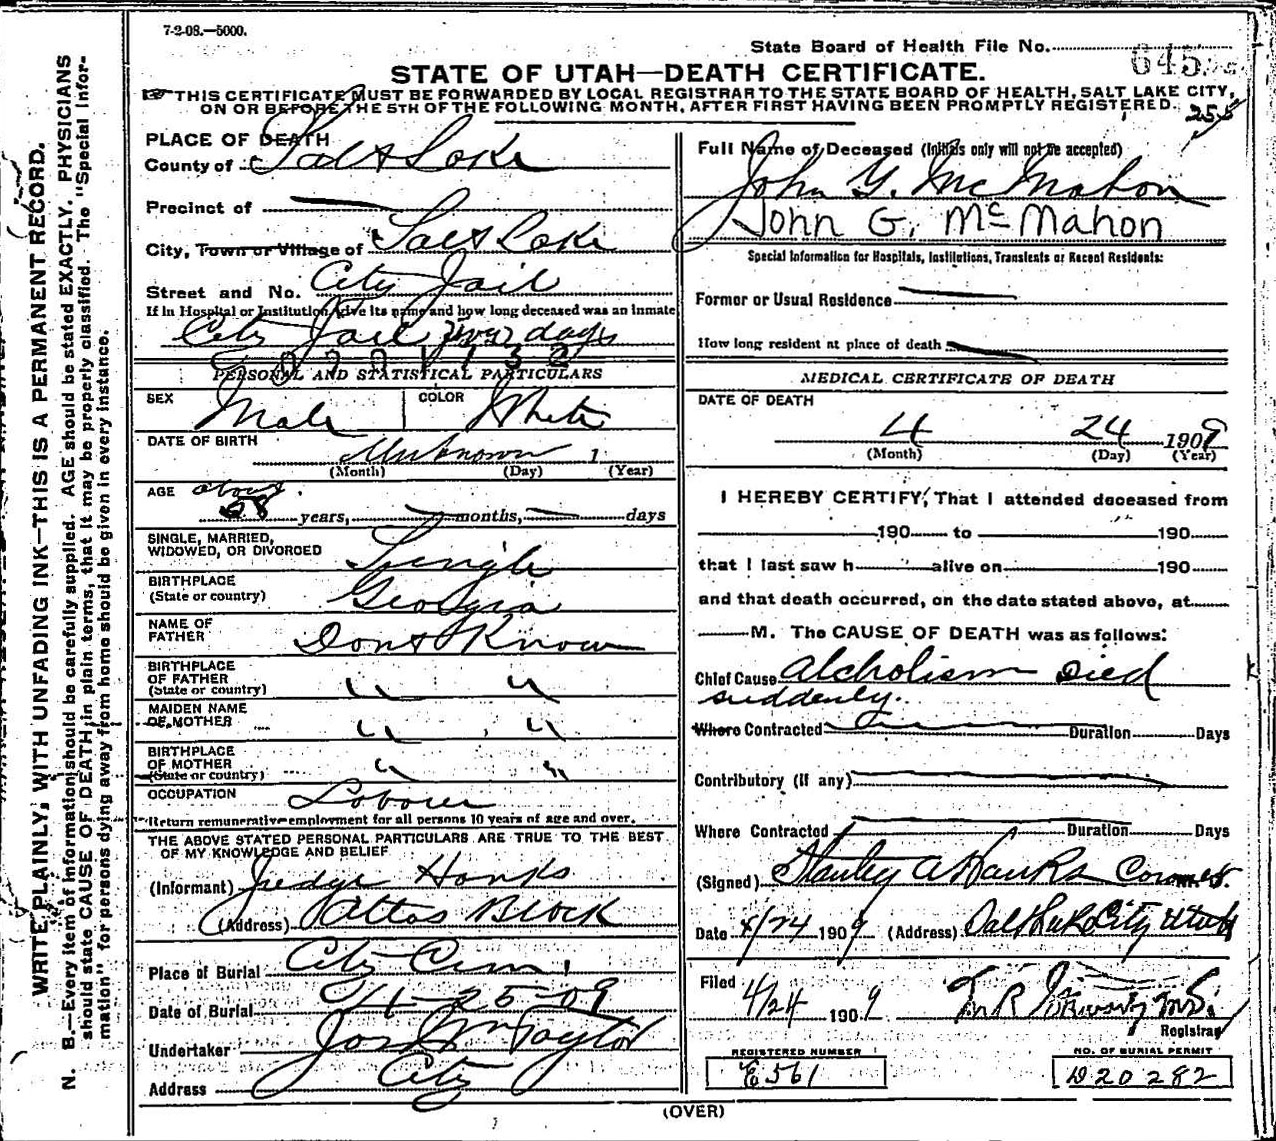 7-2-08.—5000.
State Board of Health File No. 645
STATE OF UTAH—DEATH CERTIFICATE.
THIS CERTIFICATE MUST BE FORWARDED BY LOCAL REGISTRAR TO THE STATE BOARD OF HEALTH, SALT LAKE CITY,
ON OR BEFORE THE 5TH OF THE FOLLOWING MONTH, AFTER FIRST HAVING BEEN PROMPTLY REGISTERED.
255
WRITE PLAINLY, WITH UNFADING INK—THIS IS A PERMANENT RECORD.
N. B.—Every item of information should be carefully supplied. AGE should be stated EXACTLY. PHYSICIANS
should state CAUSE OF DEATH in plain terms, that it may be properly classified. The "Special Infor-
mation" for persons dying away from home should be given in every instance.
PLACE OF DEATH
County of Salt Lake
Precinct of —
City, Town or Village of Salt Lake
Street and No. City Jail
If in Hospital or Institution, give its name and how long deceased was an inmate
City Jail two days
PERSONAL AND STATISTICAL PARTICULARS
SEX Male COLOR White
DATE OF BIRTH
Unknown 1
(Month) (Day) (Year)
AGE about
58 years, — months, — days
SINGLE, MARRIED,
WIDOWED, OR DIVORCED Single
BIRTHPLACE
(State or country) Georgia
NAME OF
FATHER Dont Know
BIRTHPLACE
OF FATHER
(State or country) " "
MAIDEN NAME
OF MOTHER " "
BIRTHPLACE
OF MOTHER
(State or country) " "
OCCUPATION Laborer
Return remunerative employment for all persons 10 years of age and over.
THE ABOVE STATED PERSONAL PARTICULARS ARE TRUE TO THE BEST
OF MY KNOWLEDGE AND BELIEF
(Informant) Judge Hanks
(Address) Attas Block
Place of Burial City Cem.
Date of Burial 4-25-09
Undertaker Jos Wm Taylor
Address City
Full Name of Deceased (Initials only will not be accepted)
John G. McMahon
John G. McMahon
Special Information for Hospitals, Institutions, Transients or Recent Residents:
Former or Usual Residence —
How long resident at place of death —
MEDICAL CERTIFICATE OF DEATH
DATE OF DEATH
4 24 1909
(Month) (Day) (Year)
I HEREBY CERTIFY, That I attended deceased from
190 to 190
that I last saw h alive on 190
and that death occurred, on the date stated above, at
M. The CAUSE OF DEATH was as follows:
Chief Cause Alcholism Died
suddenly.
Where Contracted — Duration Days
Contributory (if any) —
Where Contracted — Duration Days
(Signed) Stanley A Hanks Coroner.
Date 4/24 1909 (Address) Salt Lake City Utah
Filed 4/24 1909 M.D.
Registrar
REGISTERED NUMBER
E561
NO. OF BURIAL PERMIT
D20282
(OVER)